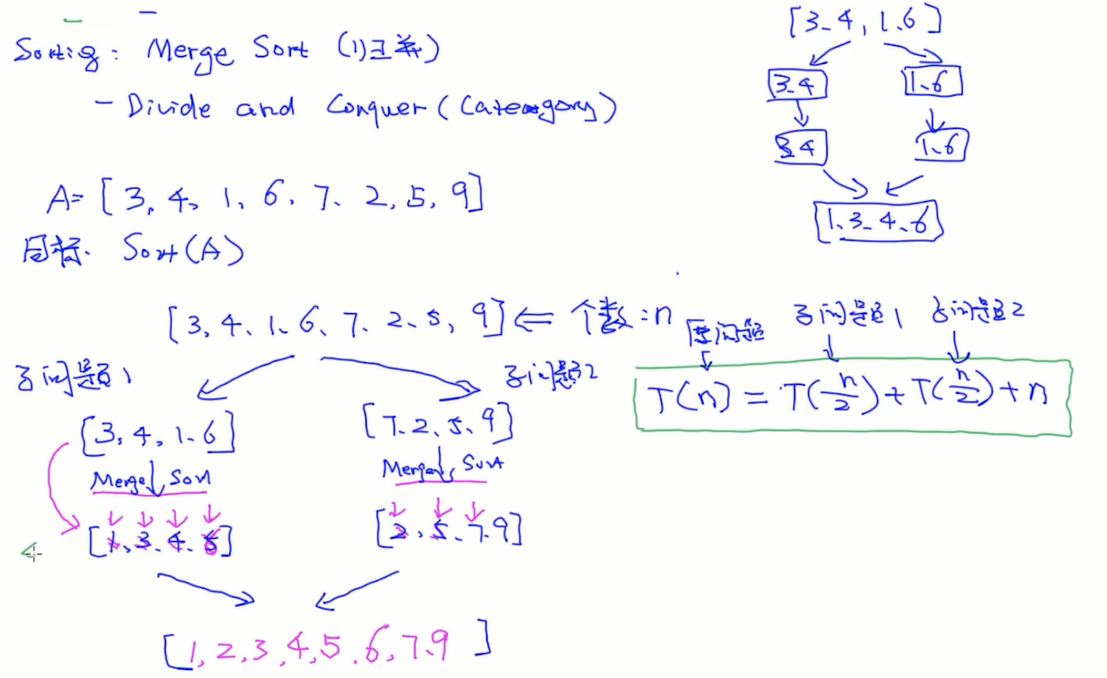 Sorting: Merge Sort (归并)
- Divide and Conquer (Category)
A= [3, 4, 1, 6, 7, 2, 5, 9]
目标. Sort(A)
[3, 4, 1, 6, 7, 2, 5, 9] ⇐ 个数:n
子问题1
子问题2
[3, 4, 1, 6]
[7, 2, 5, 9]
Merge Sort
Merge Sort
[1, 3, 4, 6]
[2, 5, 7, 9]
[1, 2, 3, 4, 5, 6, 7, 9]
[3, 4, 1, 6]
3, 4
1, 6
3, 4
1, 6
1, 3, 4, 6
原问题 子问题1 子问题2
T(n) = T(n/2) + T(n/2) + n